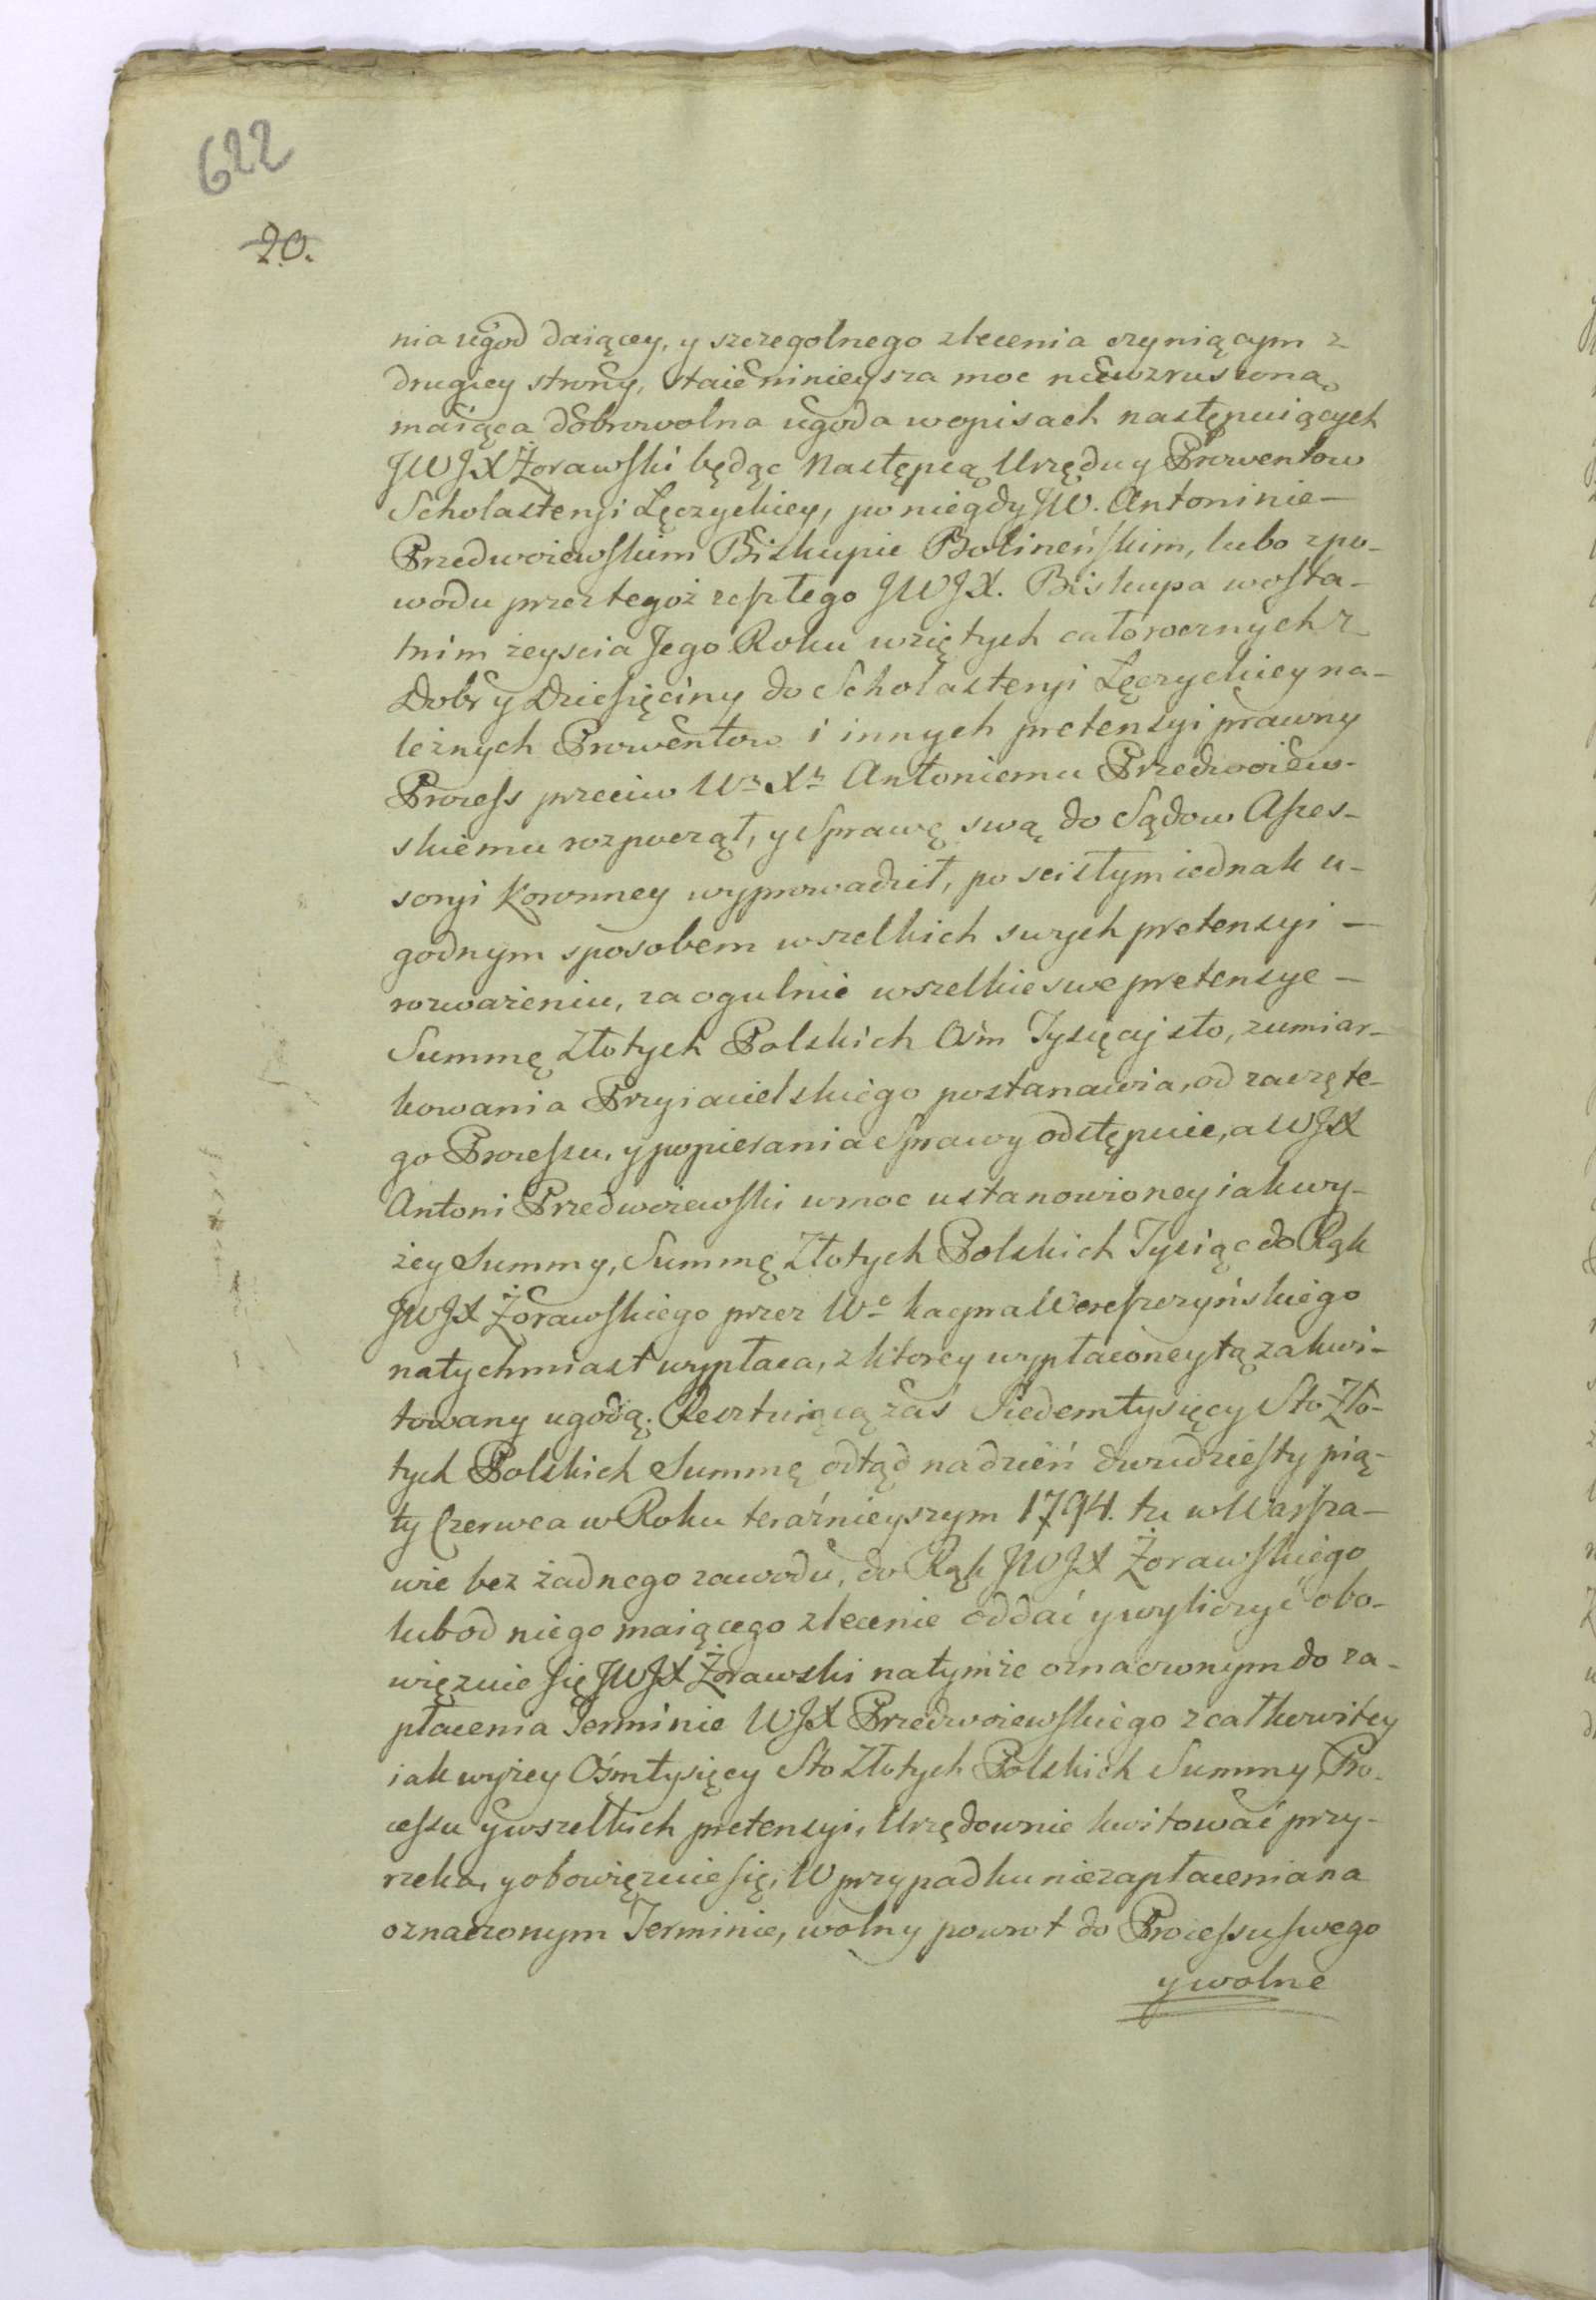 622
20.
nia ugod daiącey, y szczegolnego zlecenia czyniącym z
drugiey strony, staie ninieysza moc niewzruszoną
maiąca dobrowolna ugoda w opisach następuiących
JWJX Żorawski będąc Następcą Urzędu y Prowentow
Scholasteryi Łęczyckiey, po niegdy JW. Antoninie
Przedwoiewskim Biskupie Bolineńskim, lubo z po-
wodu przez tegoż zeszłego JWJX. Biskupa w osta-
tnim zeyscia Jego Roku wziętych całorocznych z
Dobr y Dziesięciny do Scholasteryi Łęczyckiey na-
leżnych Prowentow i innych pretensyi prawny
Process przeciw Wmu Xu Antoniemu Przedwoiew-
skiemu rozpoczął, y Sprawę swą do Sądow Asses-
soryi Koronney wyprowadził, po scisłym iednak u-
godnym sposobem wszelkich swych pretensyi —
rozważeniu, za ogulnie wszelkie swe pretensye —
Summę Złotych Polskich Ośm Tysięcy sto, z umiar-
kowania Przyiacielskiego postanawia, od zaczęte-
go Processu, y popierania Sprawy odstępuie, a WJX
Antoni Przedwoiewski w moc ustanowioney iak wy-
żey Summy, Summę Złotych Polskich Tysiąc do Rąk
JWJX Żorawskiego przez Wo Kacpra Wereszczyńskiego
natychmiast wypłaca, z ktorey wypłaconey tą zakwi-
towany ugodą. Resztuiącą zaś Siedem tysięcy Sto Zło-
tych Polskich Summę odtąd na dzień dwudziesty pią-
ty Czerwca w Roku teraźnieyszym 1794. tu w Warsza-
wie bez żadnego zawodu, do Rąk JWJX Żorawskiego
lub od niego maiącego zlecenie oddać y wyliczyć obo-
więzuie się JWJX Żorawski na tymże oznaczonym do za-
płacenia Terminie WJX Przedwoiewskiego z całkowitey
iak wyżey Ośm tysięcy Sto Złotych Polskich Summy, Pro-
cessu y wszelkich pretensyi, Urzędownie kwitować przy-
rzeka, y obowięzuie się, W przypadku niezapłacenia na
oznaczonym Terminie, wolny powrot do Processu swego
y wolne